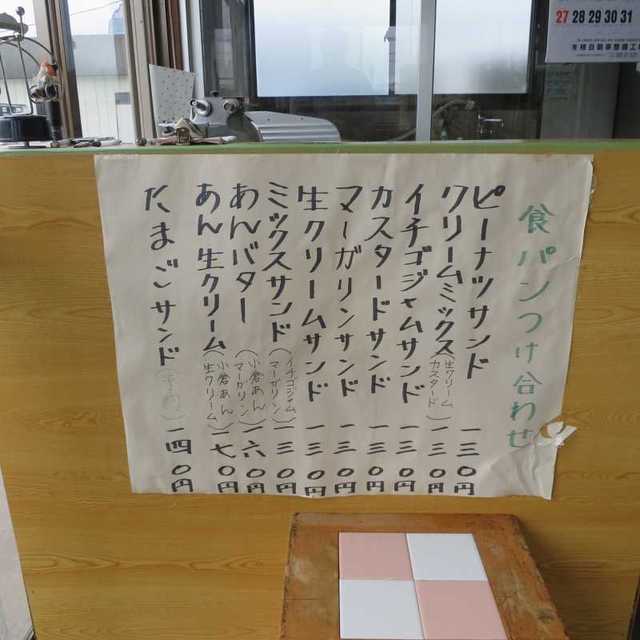 食パンつけ合わせ
ピーナツサンド 一三〇円
クリームミックス(生クリーム カスタード) 一三〇円
イチゴジャムサンド 一三〇円
カスタードサンド 一三〇円
マーガリンサンド 一三〇円
生クリームサンド 一三〇円
ミックスサンド(イチゴジャム マーガリン) 一三〇円
あんバター(小倉あん マーガリン) 一六〇円
あん生クリーム(小倉あん 生クリーム) 一七〇円
たまごサンド 一四〇円
27 28 29 30 31